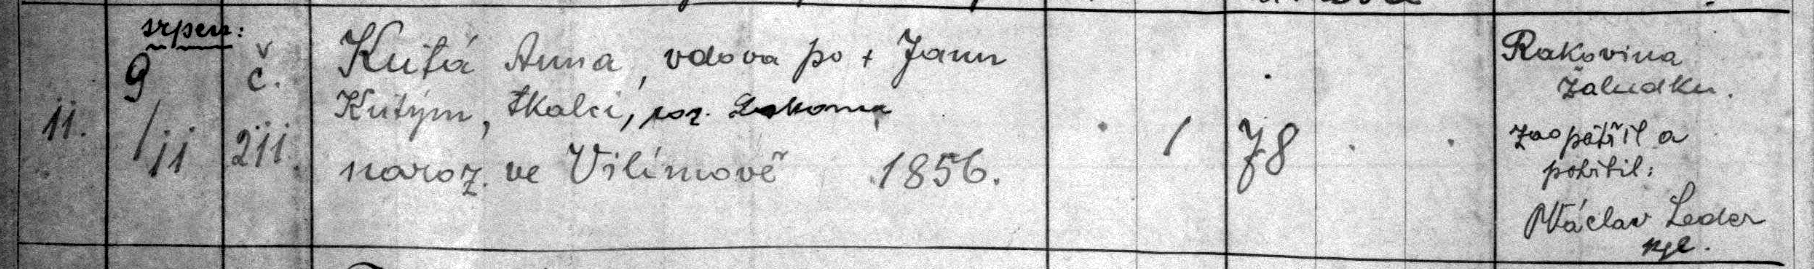 srpen:
11.
9/11
č. 211.
Kutá Anna, vdova po + Janu
Kutým, tkalci, roz.
naroz. ve Vilímově 1856.
. 1 78 . .
Rakovina
žaludku.
zaopatřil a
pohřbil:
Václav Leder